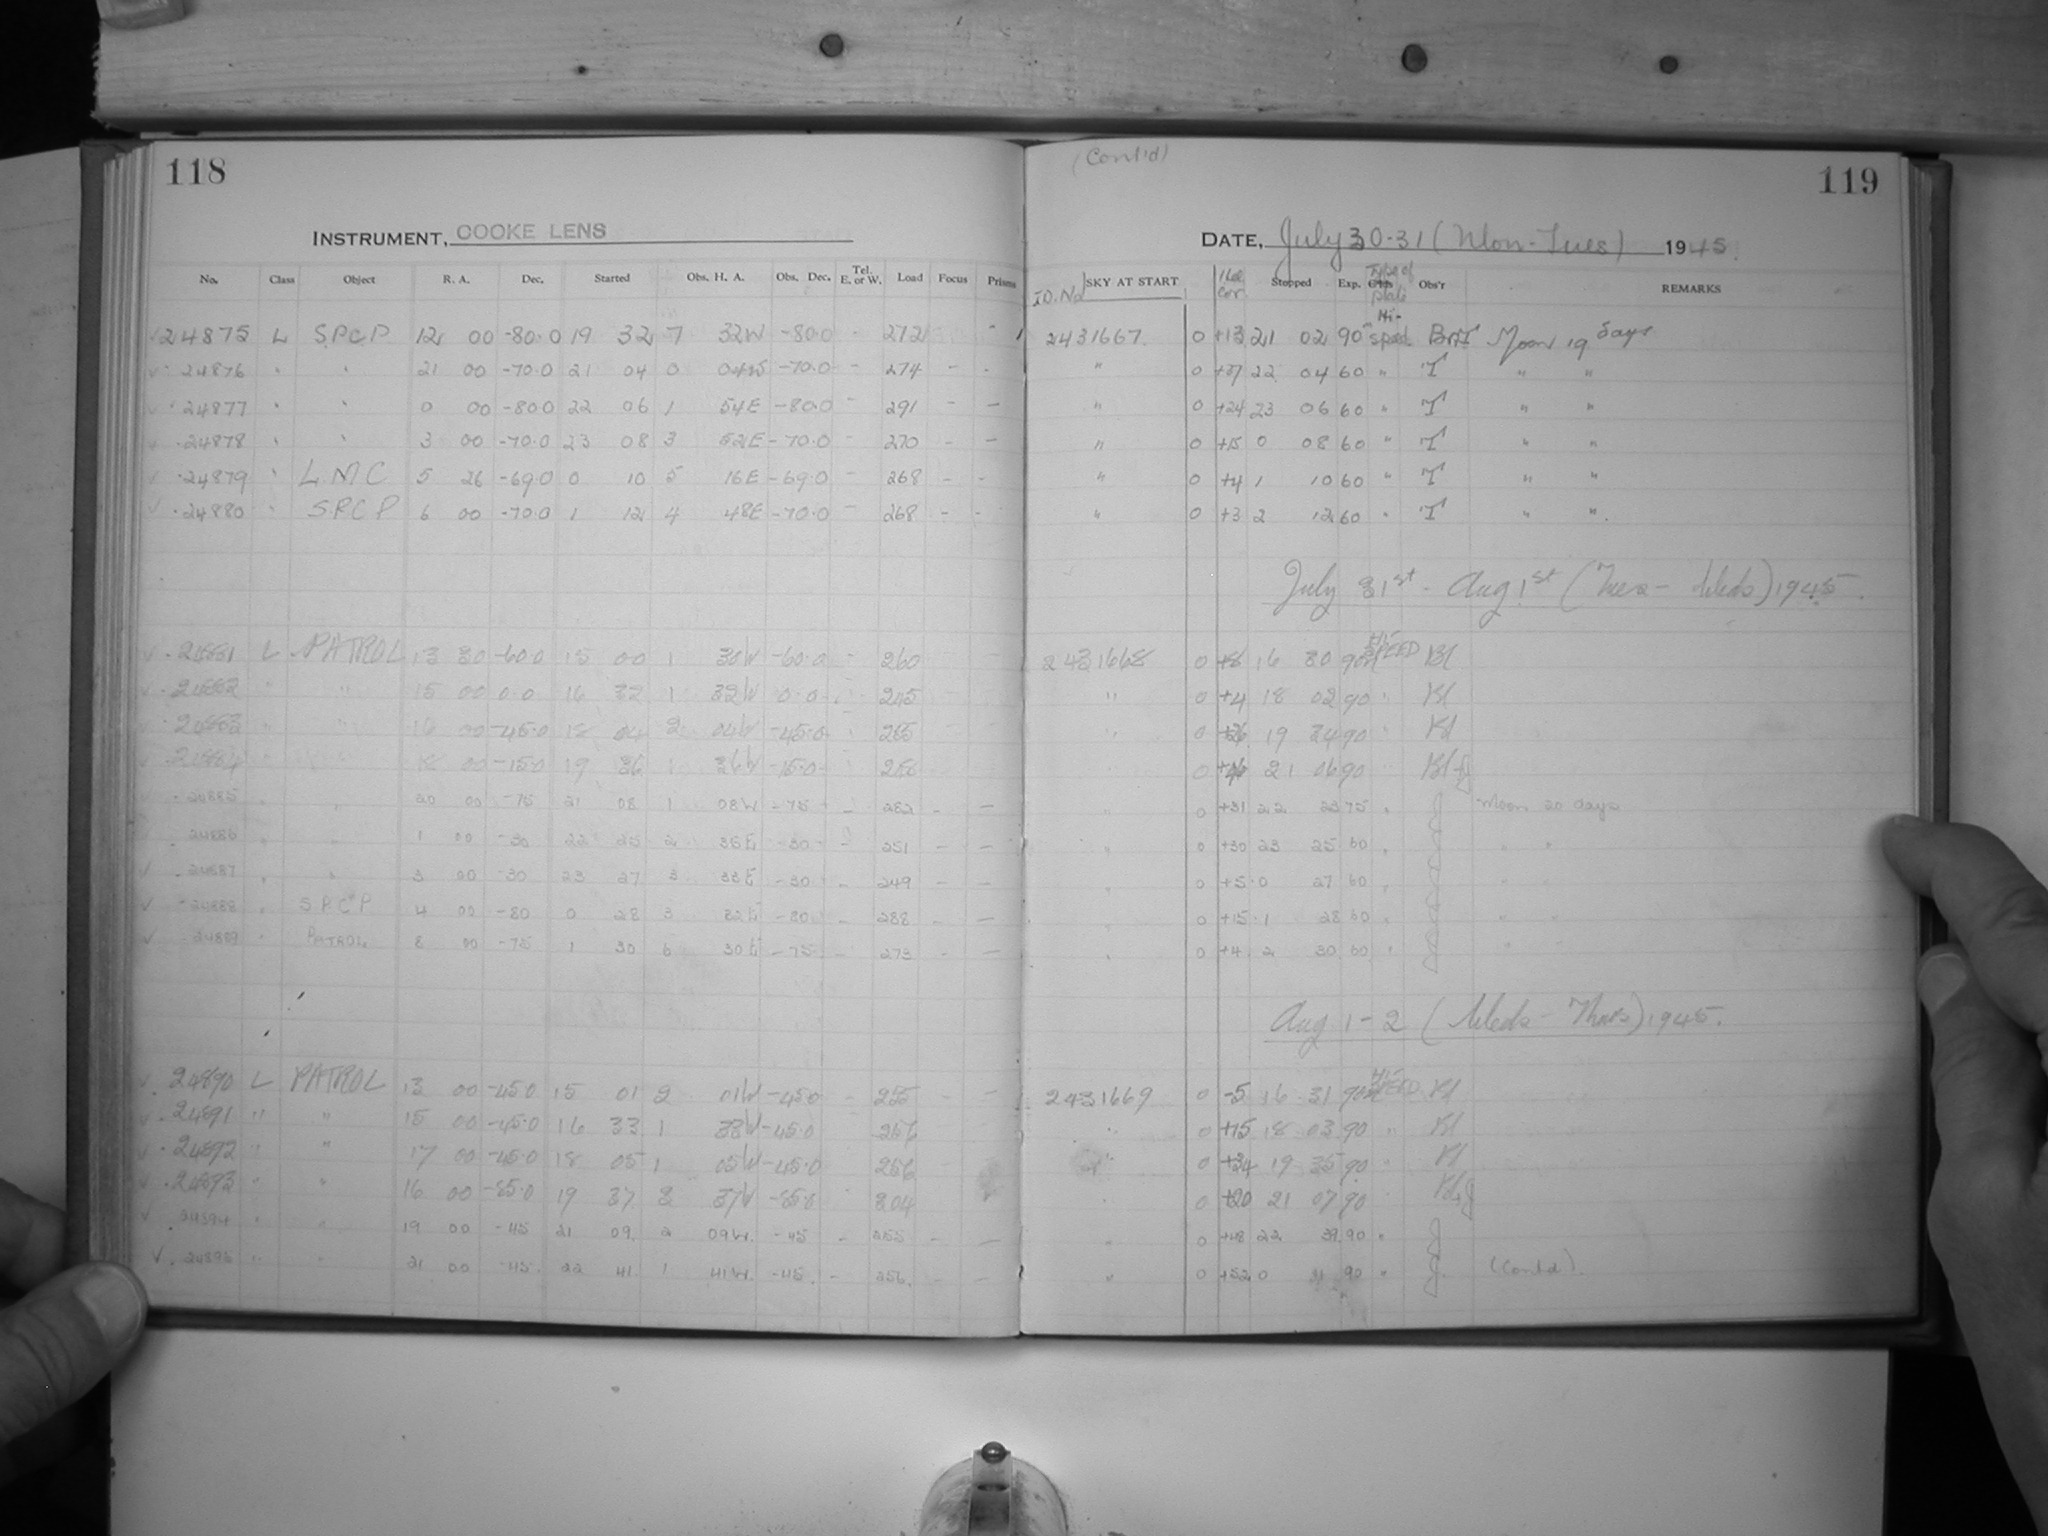 118
INSTRUMENT, COOKE LENS
No. Class Object R. A. Dec. Started Obs. H. A. Obs. Dec. Tel. E. or W. Load Focus Prisms
24875 L SPCP 12 00 -80.0 19 32 7 32W -80.0 - 272 -
24876 " " 21 00 -70.0 21 04 0 04W -70.0 - 274 - -
24877 " " 0 00 -80.0 22 06 1 54E -80.0 - 291 - -
24878 " " 3 00 -70.0 23 08 3 52E -70.0 - 270 - -
24879 " LMC 5 26 -69.0 0 10 5 16E -69.0 - 268 - -
24880 " SPCP 6 00 -70.0 1 12 4 48E -70.0 - 268 - -
24881 L PATROL 13 30 -60.0 15 00 1 30W -60.0 - 260 -
24882 " " 15 00 0.0 16 32 1 32W 0.0 - 245
24883 " " 16 00 -45.0 18 04 2 04W -45.0 255
24884 " " 18 00 -15.0 19 36 1 36W -15.0
24885 " " 20 00 -75 21 08 1 08W -75 - 282 - -
24886 " " 1 00 -30 22 25 2 35E -30 - 251 - -
24887 " " 3 00 -30 23 27 3 33E -30 - 249 - -
24888 " SPCP 4 00 -80 0 28 3 32E -80 - 288 - -
24889 " PATROL 8 00 -75 1 30 6 30E -75 - 273 - -
24890 L PATROL 13 00 -45.0 15 01 2 01W -45.0 - 255 -
24891 " " 15 00 -45.0 16 33 1 33W -45.0
24892 " " 17 00 -45.0 18 05 1 05W -45.0 256
24893 " " 16 00 -85.0 19 37 3 37W -85.0 304
24894 " " 19 00 -45 21 09 2 09W. -45 - 255 - -
24895 " " 21 00 -45. 22 41. 1 41W. -45. - 256. - -
(Cont'd)
119
DATE, July 30-31 (Mon-Tues) 1945.
ID. No SKY AT START Stopped Exp. Type of plate Obs'r REMARKS
2431667. 0 +13 21 02 90m Hi-speed Moon 19 days
" 0 +37 22 04 60 " T " "
" 0 +24 23 06 60 " T " "
" 0 +15 0 08 60 " T " "
" 0 +4 1 10 60 " T " "
" 0 +3 2 12 60 " T " ".
July 31st - Aug 1st (Tues - Weds) 1945.
2431668 0 +8 16 30 90 HI-SPEED Bl
" 0 +4 18 02 90 " Bl
" 0 19 34 90 " Bl
" 0 21 06 90 " Bl+J
" 0 +31 22 23 75 " J Moon 20 days
" 0 +30 23 25 60 " J " "
" 0 +5 0 27 60 " J " "
" 0 +15 1 28 60 " J " "
" 0 +4 2 30 60 " J " "
Aug. 1-2 (Weds - Thurs) 1945.
2431669 0 -5 16 31 90 HI-SPEED Bl
" 0 +15 18 03 90 " Bl
" 0 +34 19 35 90 " Bl
" 0 +20 21 07 90 " Bl+J
" 0 +48 22 39 90 " J
" 0 +52 0 11 90 " J (Cont'd).